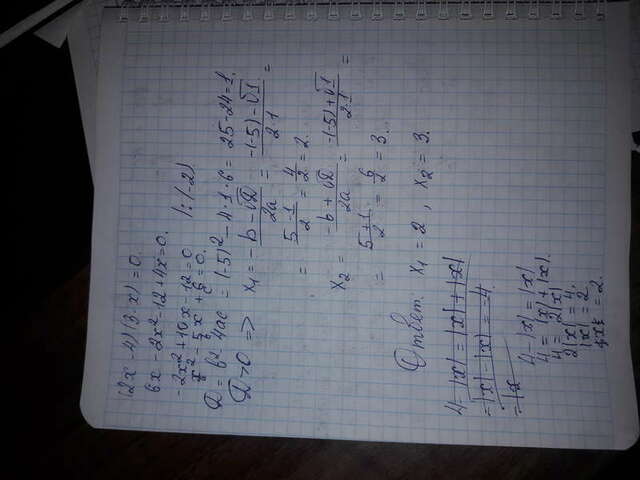 (2x - 4)(3 - x) = 0.
6x - 2x² - 12 + 4x = 0.
-2x² + 10x - 12 = 0 |:(-2)
x² - 5x + 6 = 0.
D = b² - 4ac = (-5)² - 4·1·6 = 25 - 24 = 1.
D > 0 => x₁ = (-b - √D)/2a = (-(-5) - √1)/(2·1) =
= (5 - 1)/2 = 4/2 = 2.
x₂ = (-b + √D)/2a = (-(-5) + √1)/(2·1) =
= (5 + 1)/2 = 6/2 = 3.
Ответ: x₁ = 2, x₂ = 3.
4 - |x| = |x| + |x|
= |x| - |x| = -4.
= |x
4 - |x| = |x|
4 = |x| + |x|.
4 = 2|x|
2|x| = 4.
|x| = 2.
x = 2.